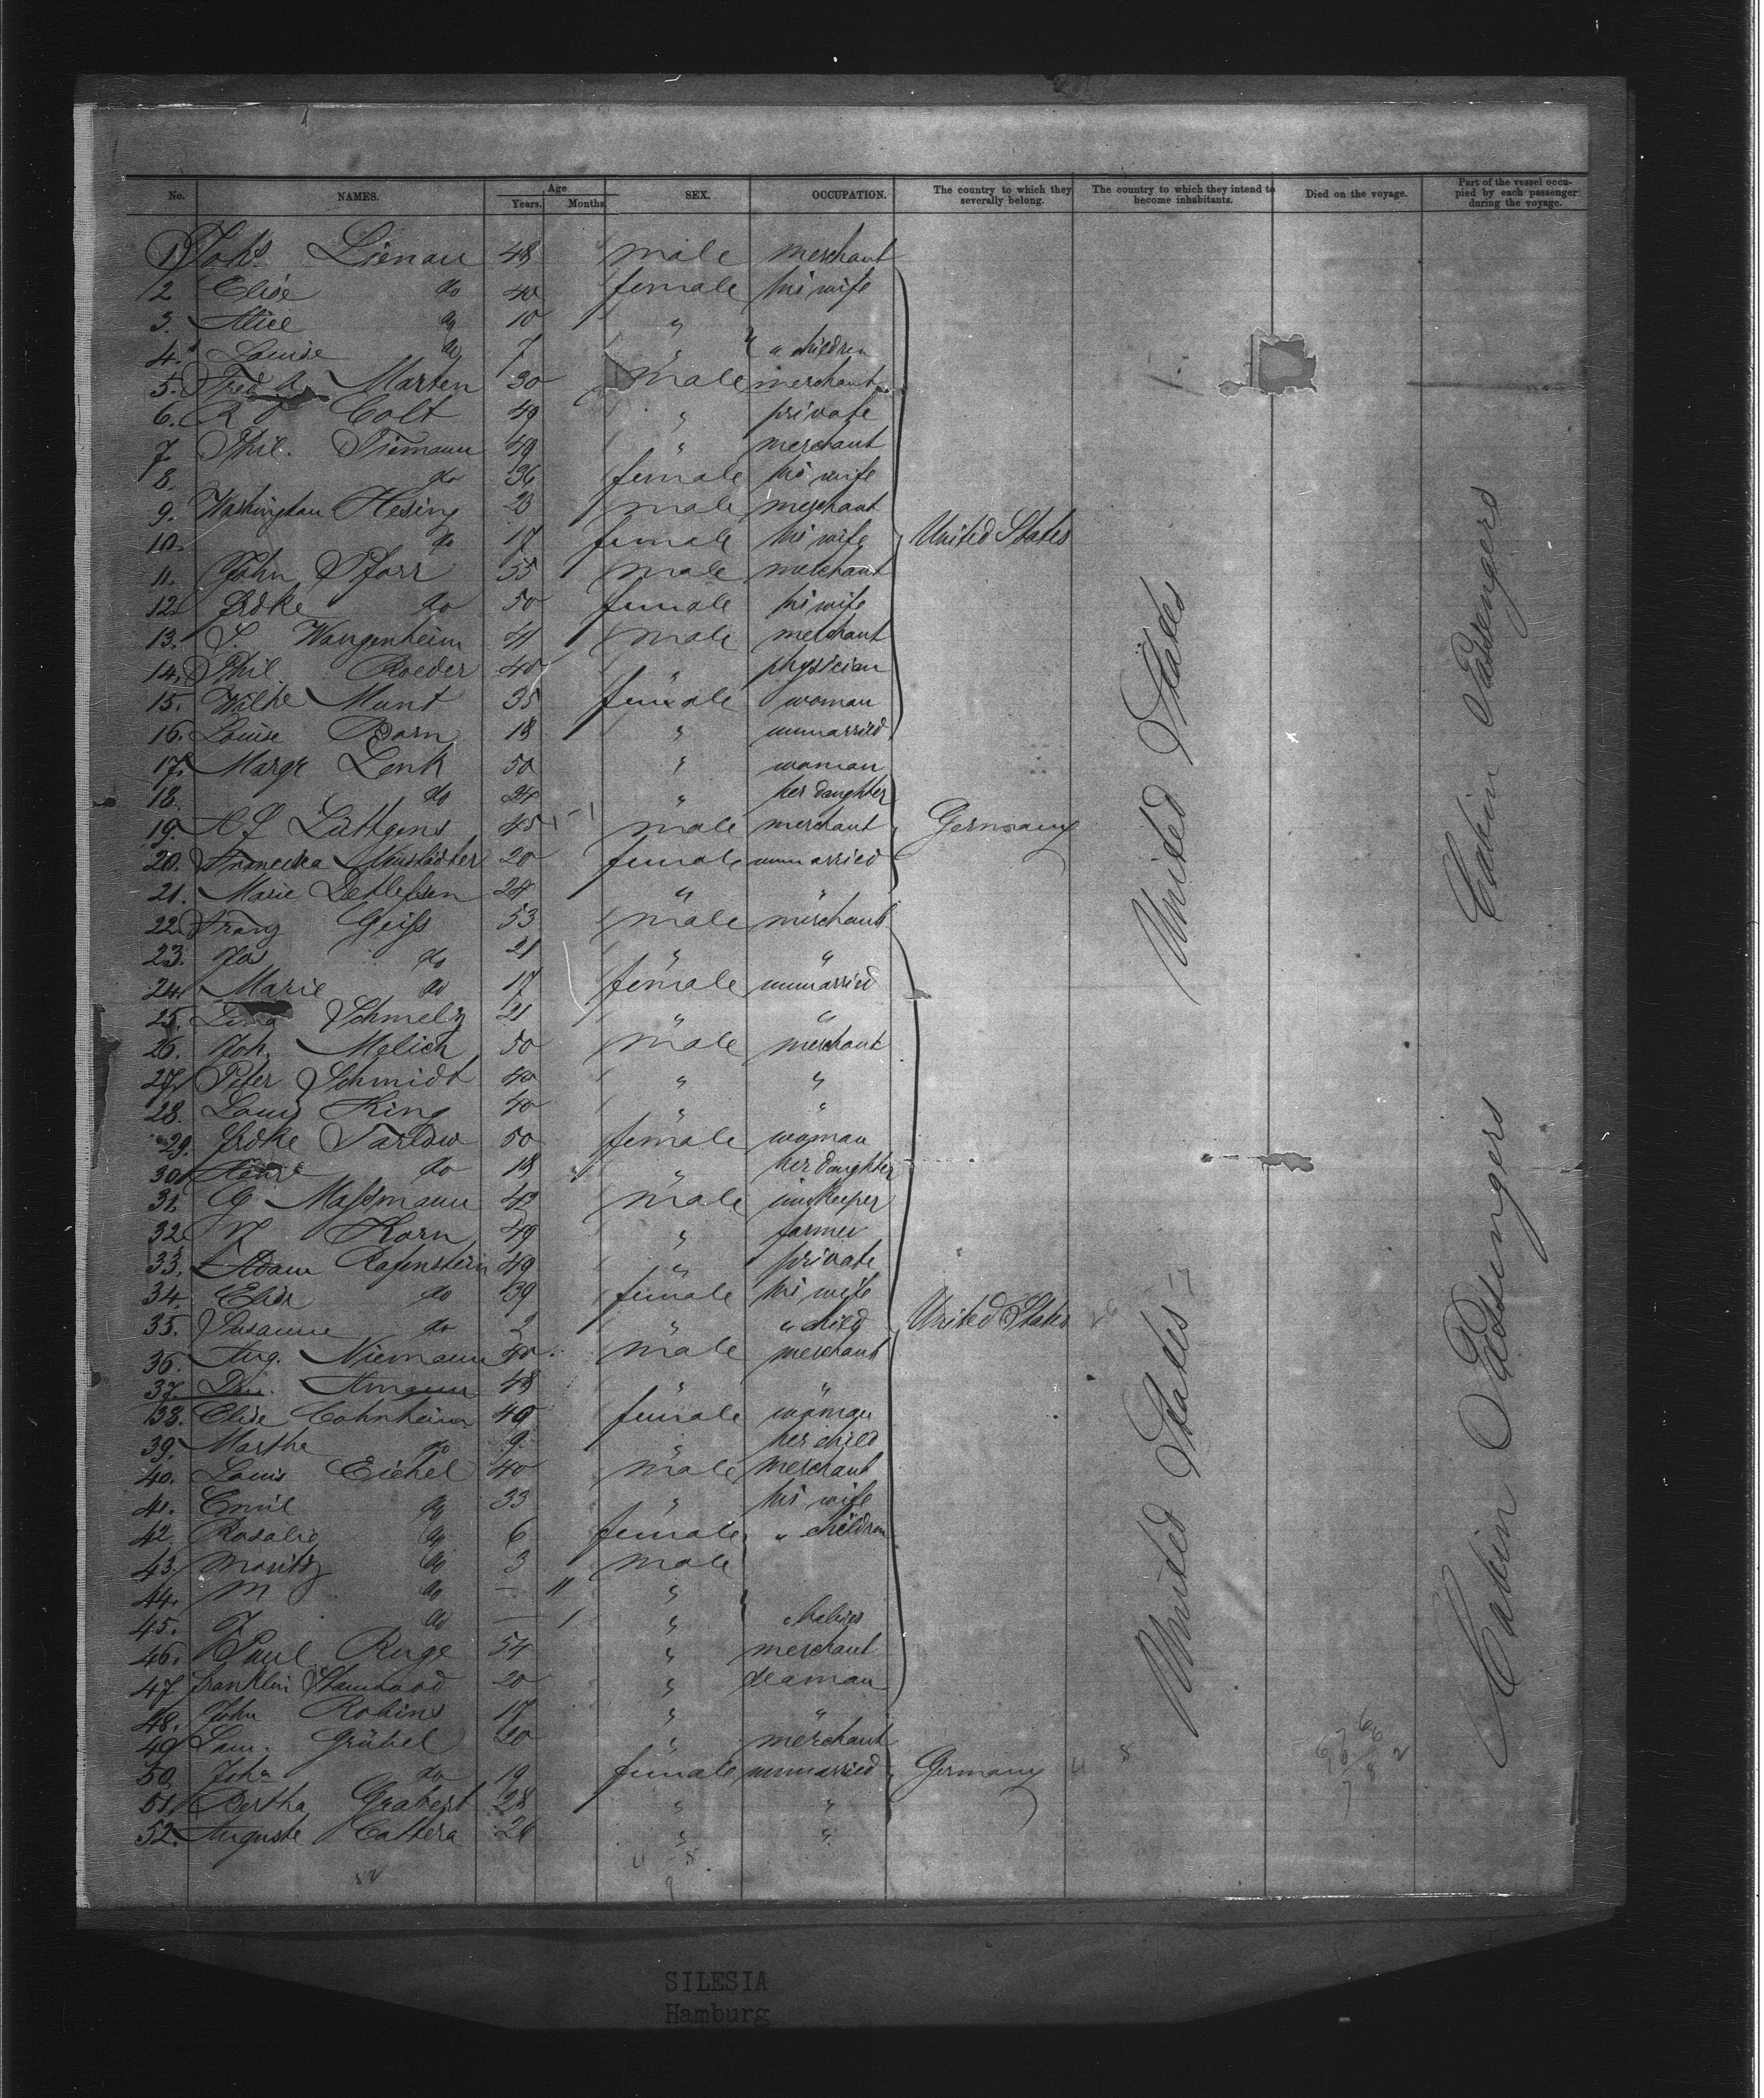 No. NAMES. Age Years. Months SEX. OCCUPATION. The country to which they severally belong. The country to which they intend to become inhabitants. Died on the voyage. Part of the vessel occupied by each passenger during the voyage.
1 Johs Lienau 48 male merchant
2 Elise do 40 female his wife
3. Alice do 10 "
4. Louise do 7 " " children
5. Fred Marten 30 male merchant
6. R Colt 49 " private
7. Phil. Tiemann 49 " merchant
8. do 36 female his wife
9. Washington Hesing 23 male merchant
10. do 17 female his wife United States
11. John Pfarr 55 male merchant
12. Frdke do 50 female his wife
13. S. Wangenheim 41 male merchant
14. Phil Roeder 40 " physician
15. Wilke Munt 35 female woman
16. Louise Born 18 " unmarried
17. Margr Lenk 50 " woman
18. do 24 " her daughter
19. Lüttgens 45 male merchant Germany
20. Francisca Neustädter 20 female unmarried
21. Marie Detlefsen 24 " "
22. Franz Geiss 53 male merchant
23. do 21 " "
24. Marie do 17 female unmarried
25. Schmelz 21 " "
26. Joh. Melich 50 male merchant
27. Peter Schmidt 40 " "
28. Louis King 40 " "
29. Frdke Tarlow 50 female woman
30. do 18 " her daughter
31. G Massmann 42 male innkeeper
32. Korn 49 " farmer
33. Adam Rasenstein 49 " private
34. Elise do 39 female his wife
35. Susanne do 2 " " child United States
36. Aug. Niemann 40 male merchant
37. 48 " "
38. Elise Cohnheim 40 female woman
39. Martha do 9 " her child
40. Louis Eichel 40 male merchant
41. Emil do 33 " his wife
42. Rosalie do 6 female " children
43. Moritz do 3 male
44. M do – 11 "
45. do – 1 " " babies
46. Paul Ruge 54 " merchant
47 Franklin 20 " seaman
48. John Robins 17 " "
49 Grübel 60 " merchant
50. Joha do 19 female unmarried Germany
51. Bertha Grabert 28 " "
52. Auguste Cattera 26 " "
United States
United States
Cabin Passengers
Cabin Passengers
52
SILESIA
Hamburg